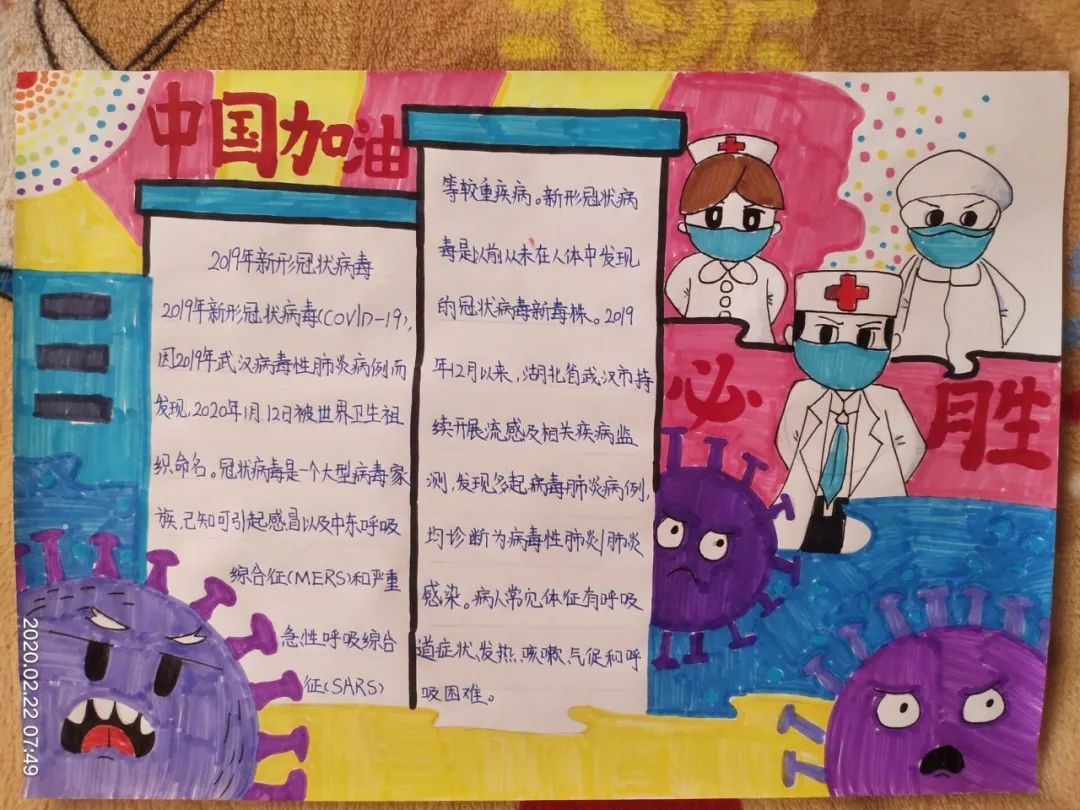 中国加油
2019年新形冠状病毒
2019年新形冠状病毒(COVID-19),
因2019年武汉病毒性肺炎病例而
发现,2020年1月12日被世界卫生祖
织命名。冠状病毒是一个大型病毒家
族,已知可引起感冒以及中东呼吸
综合征(MERS)和严重
急性呼吸综合
征(SARS)
等较重疾病。新形冠状病
毒是以前从未在人体中发现
的冠状病毒新毒株。2019
年12月以来,湖北省武汉市持
续开展流感及相关疾病监
测,发现多起病毒肺炎病例,
均诊断为病毒性肺炎/肺炎
感染。病人常见体征有呼吸
道症状、发热、咳嗽、气促和呼
吸困难。
必胜
2020.02.22 07:49